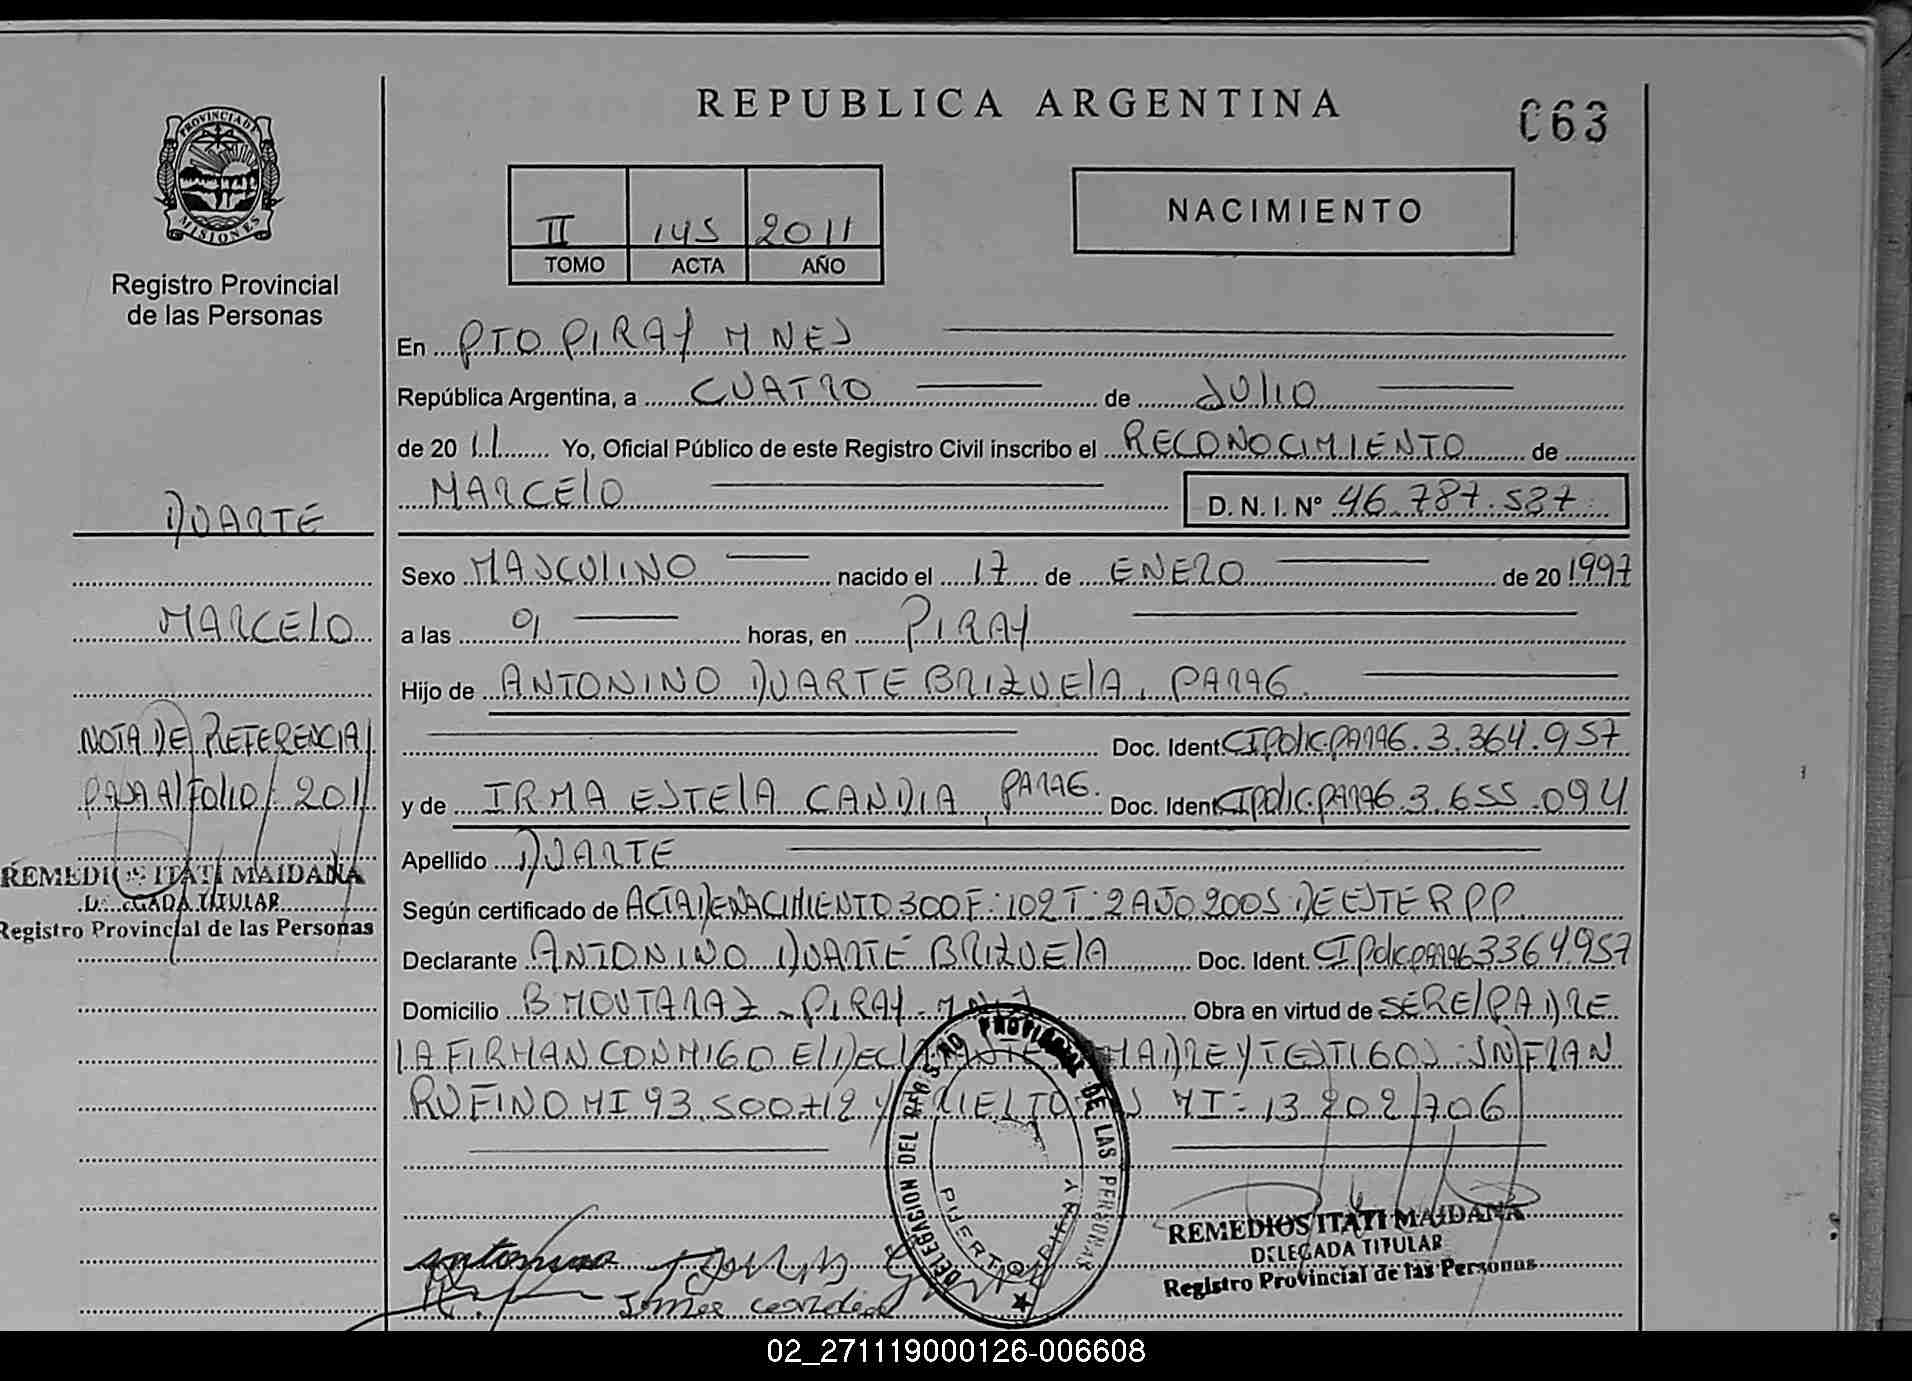 REPUBLICA ARGENTINA
063
PROVINCIA DE
MISIONES
Registro Provincial
de las Personas
II 145 2011
TOMO ACTA AÑO
NACIMIENTO
En PTO PIRAY MNES
República Argentina, a CUATRO de JULIO
de 20 11 Yo, Oficial Público de este Registro Civil inscribo el RECONOCIMIENTO de
MARCELO D. N. I. Nº 46.787.587
DUARTE
Sexo MASCULINO nacido el 17 de ENERO de 20 1997
MARCELO
a las 01 horas, en PIRAY
Hijo de ANTONINO DUARTE BRIZUELA, PARAG.
Doc. Ident. CIPOLICPARAG. 3.364.957
NOTA DE REFERENCIA
PASA AL FOLIO 201
y de IRMA ESTELA CANDIA, PARAG. Doc. Ident. CIPOLICPARAG 3.655.094
Apellido DUARTE
REMEDIOS ITATI MAIDANA
DELEGADA TITULAR
Registro Provincial de las Personas
Según certificado de ACTA DE NACIMIENTO 300 F: 102 T: 2 AÑO 2005 DE ESTE R P P
Declarante ANTONINO DUARTE BRIZUELA Doc. Ident. CIPOLICPARAG 3364957
Domicilio B MOUTARAZ - PIRAY - MNES Obra en virtud de SER EL PADRE
LA FIRMAN CONMIGO EL DECLARANTE MADRE Y TESTIGOS
RUFINO MI 93.500712 Y MI: 13 202 706
DELEGACION DEL REGISTRO PROVINCIAL DE LAS PERSONAS
PUERTO PIRAY
REMEDIOS ITATI MAIDANA
DELEGADA TITULAR
Registro Provincial de las Personas
Antonino
Irma Candia
02_271119000126-006608